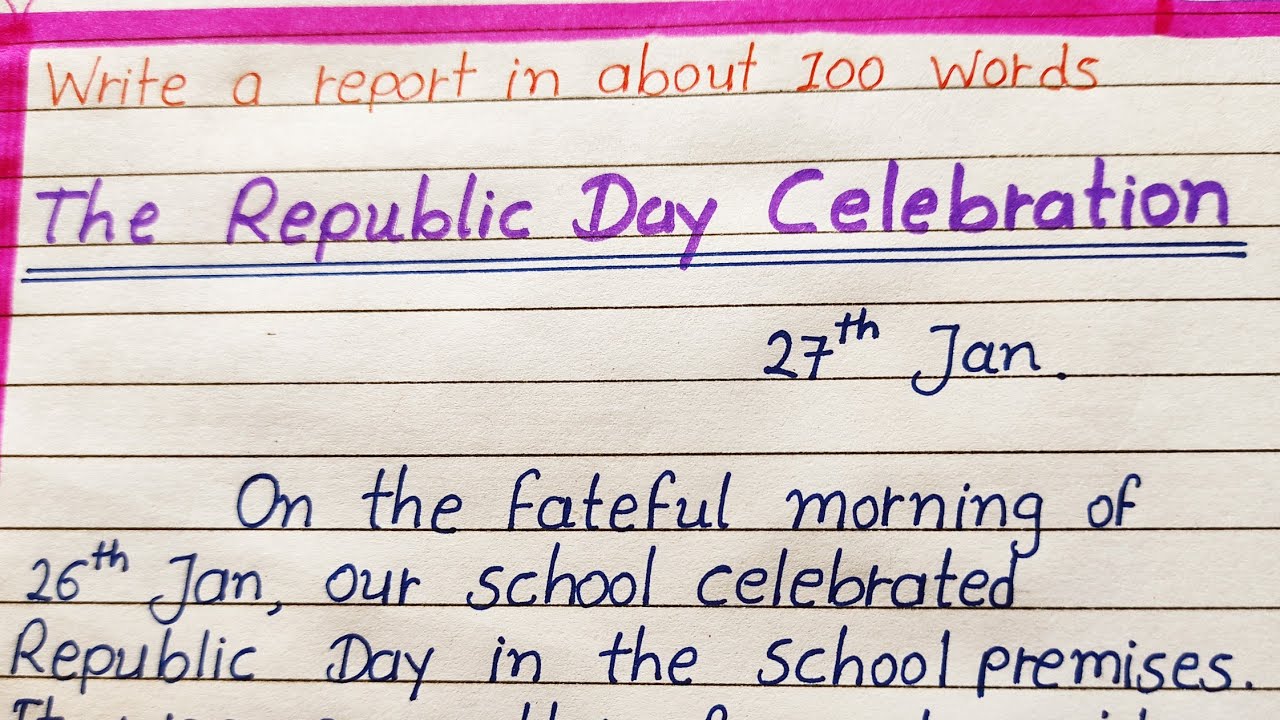 Write a report in about 100 words
The Republic Day Celebration
27th Jan.
On the fateful morning of
26th Jan, our school celebrated
Republic Day in the school premises.